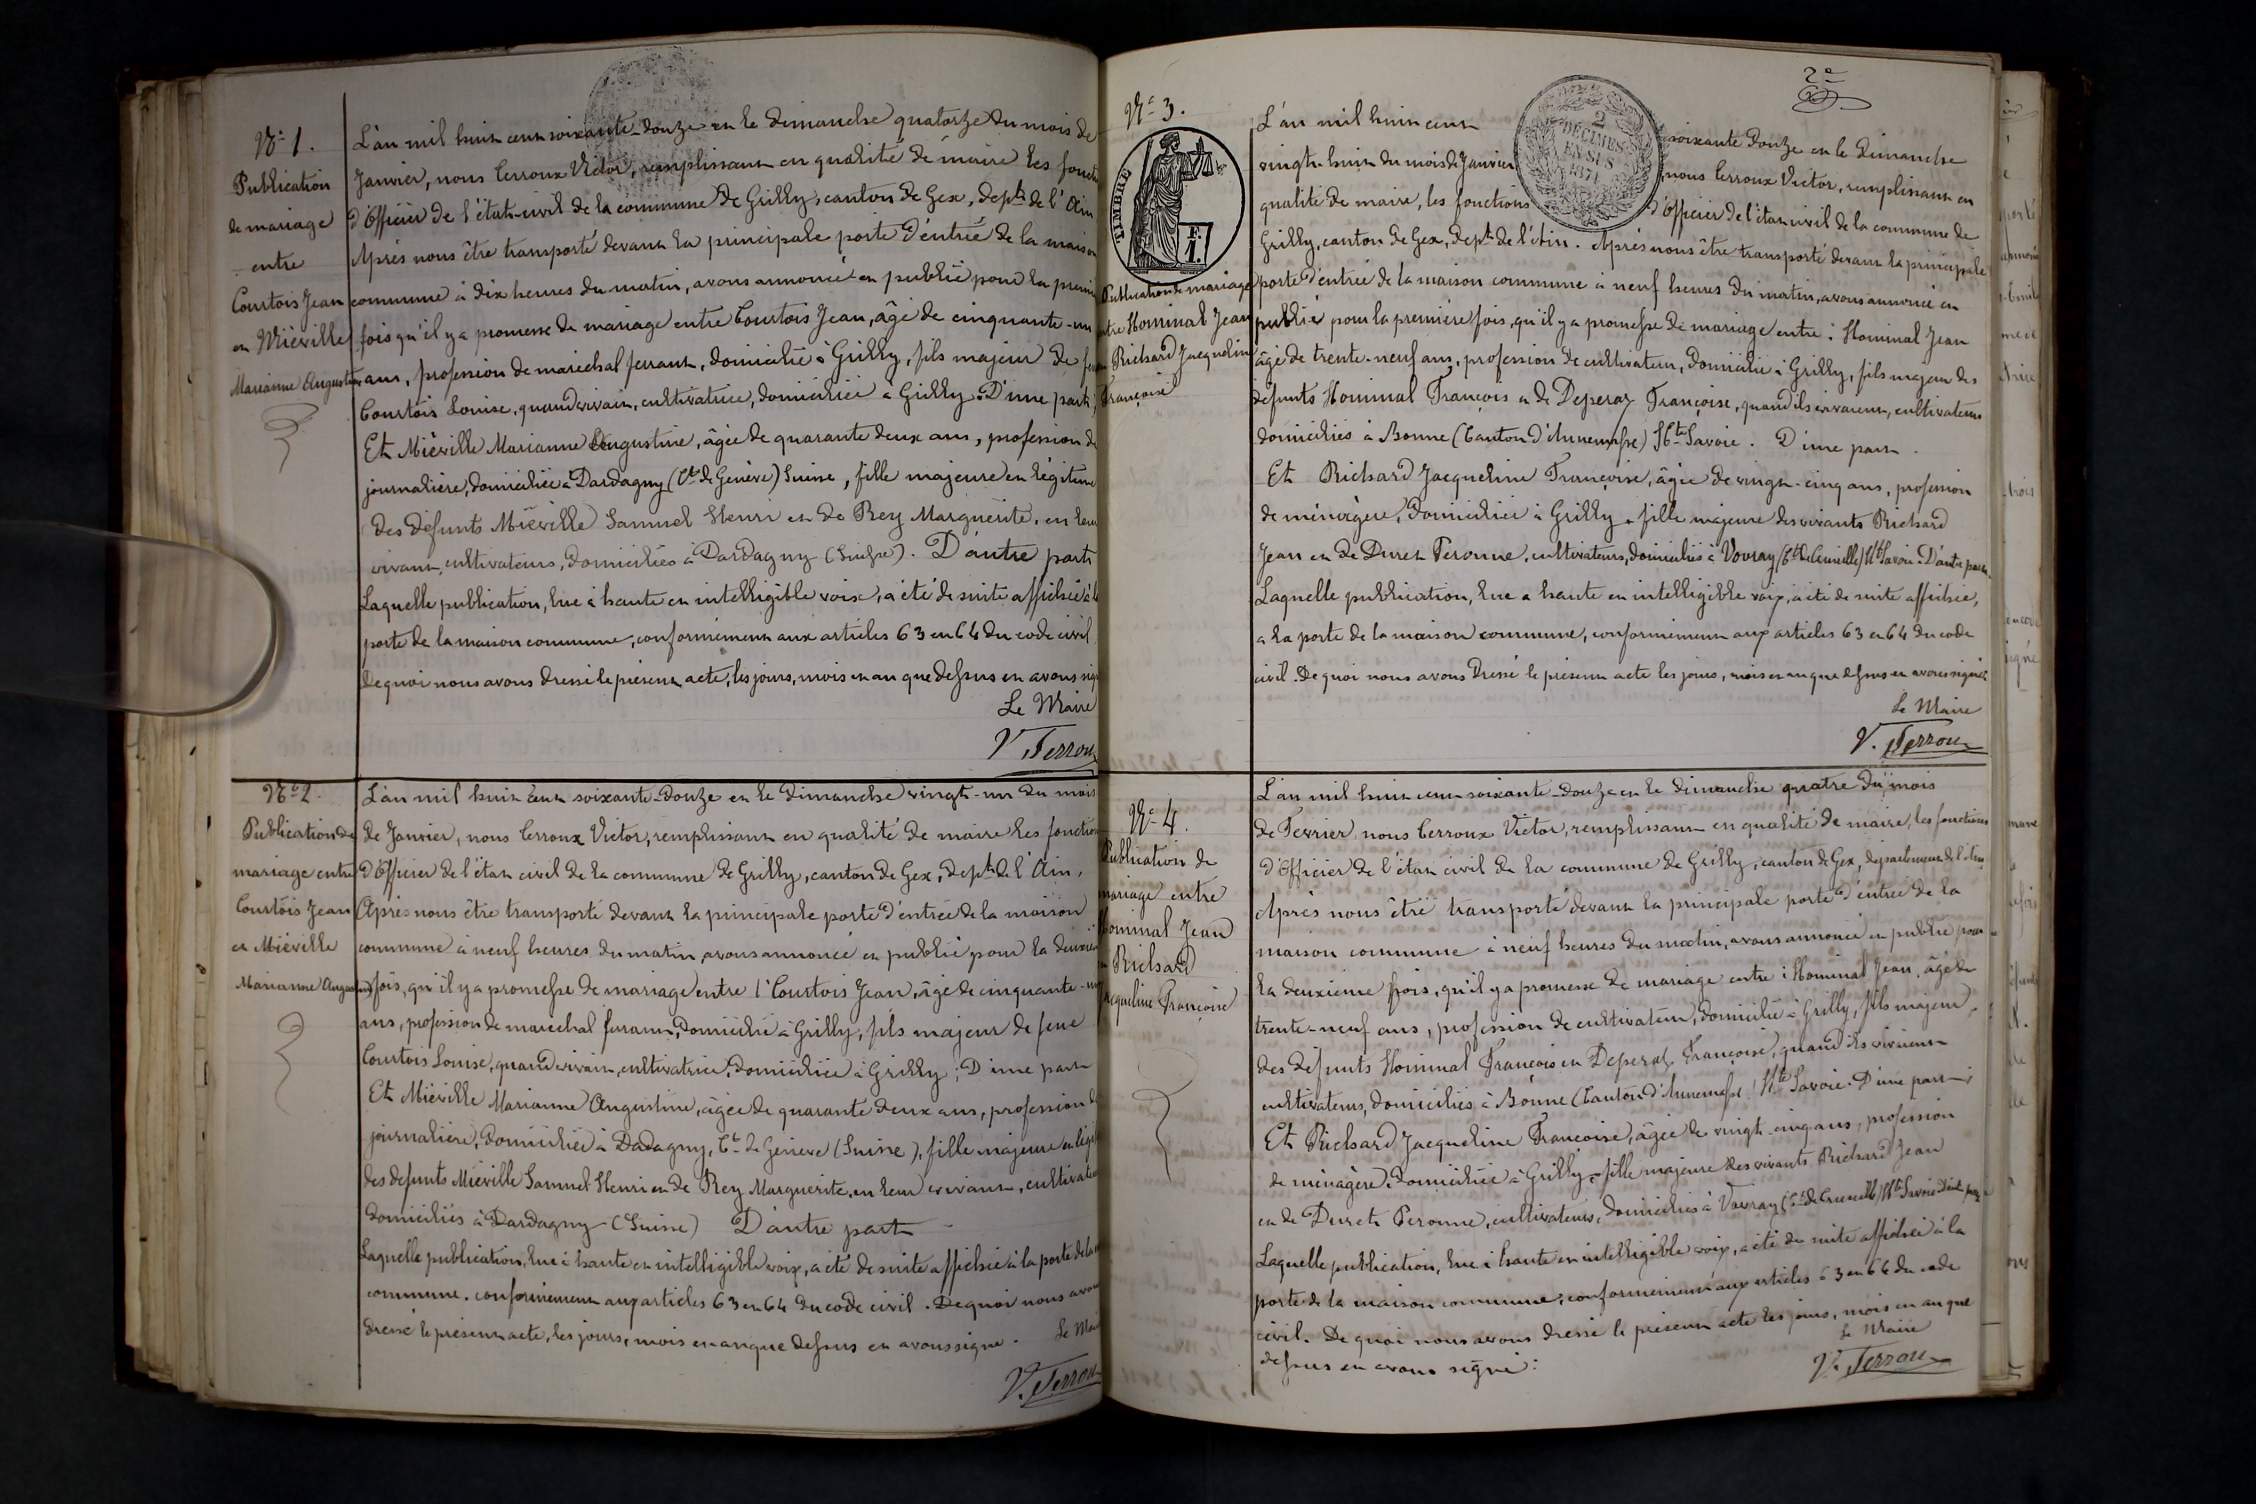 N° 1.
Publication
de mariage
entre
Courtois Jean
et Miéville
Marianne Augustine
L'an mil huit cent soixante-douze et le dimanche quatorze du mois de
Janvier, nous Terroux Victor, remplissant en qualité de maire les fonct
d'Officier de l'état-civil de la commune de Grilly, canton de Gex, dept de l'Ain
Après nous être transporté devant la principale porte d'entrée de la maison
commune à dix heures du matin, avons annoncé et publié pour la premi
fois qu'il y a promesse de mariage entre Courtois Jean, âgé de cinquante-un
ans, profession de maréchal ferrant, domicilié à Grilly, fils majeur de feue
Courtois Louise, quand vivait, cultivatrice, domiciliée à Grilly. D'une part;
Et Miéville Marianne Augustine, âgée de quarante deux ans, profession de
journalière, domiciliée à Dardagny (Ct de Genève) Suisse, fille majeure et légitime
des défunts Miéville Samuel Henri et de Rey Marguerite, en leur
vivant, cultivateurs, domiciliés à Dardagny (Suisse). D'autre part
Laquelle publication, lue à haute et intelligible voix, a été de suite affichée à la
porte de la maison commune, conformément aux articles 63 et 64 du code civil.
De quoi nous avons dressé le présent acte, les jours, mois et an que dessus et avons sign
Le Maire
V. Terroux
N° 2.
Publication de
mariage entre
Courtois Jean
et Miéville
Marianne Augustine
L'an mil huit cent soixante-douze et le dimanche vingt-un du mois
de Janvier, nous Terroux Victor, remplissant en qualité de maire les fonction
d'Officier de l'état civil de la commune de Grilly, canton de Gex, dept de l'Ain.
Après nous être transporté devant la principale porte d'entrée de la maison
commune à neuf heures du matin, avons annoncé et publié pour la deuxiè
fois, qu'il y a promesse de mariage entre : Courtois Jean, âgé de cinquante-un
ans, profession de maréchal ferrant, domicilié à Grilly, fils majeur de feue
Courtois Louise, quand vivait, cultivatrice, domiciliée à Grilly; D'une part
Et Miéville Marianne Augustine, âgée de quarante deux ans, profession de
journalière, domiciliée à Dadagny, Ct de Genève (Suisse), fille majeure et légi
des défunts Miéville Samuel Henri et de Rey Marguerite, en leur vivant, cultivateu
domiciliés à Dardagny (Suisse) D'autre part
Laquelle publication, lue à haute et intelligible voix, a été de suite affichée à la porte de la m
commune. conformément aux articles 63 et 64 du code civil. De quoi nous avons
dressé le présent acte, les jours, mois et an que dessus et avons signé.
Le Mai
V. Terroux
2e
N° 3.
TIMBRE
F.
1.
2
DÉCIMES
EN SUS
1871
Publication de mariage
entre Hominal Jean
et Richard Jacqueline
Françoise
L'an mil huit cent soixante douze et le dimanche
vingt-huit du mois de Janvier, nous Terroux Victor, remplissant en
qualité de maire, les fonctions d'Officier de l'état civil de la commune de
Grilly, canton de Gex, dept de l'Ain. Après nous être transporté devant la principale
porte d'entrée de la maison commune à neuf heures du matin, avons annoncé et
publié pour la première fois, qu'il y a promesse de mariage entre : Hominal Jean
âgé de trente-neuf ans, profession de cultivateur, domicilié à Grilly, fils majeur des
défunts Hominal François et de Deperaz Françoise, quand ils vivaient, cultivateurs
domiciliés à Bonne (Canton d'Annemasse) Hte Savoie. D'une part.
Et Richard Jacqueline Françoise, âgée de vingt-cinq ans, profession
de ménagère, domiciliée à Grilly, fille majeure des vivants Richard
Jean et de Duret Peronne, cultivateurs, domiciliés à Vovray (Ct de Cruseille) Hte Savoie. D'autre part.
Laquelle publication, lue a haute et intelligible voix, a été de suite affichée,
a la porte de la maison commune, conformément aux articles 63 et 64 du code
civil. De quoi nous avons dressé le présent acte les jours, mois et an que dessus et avons signé.
Le Maire
V. Terroux
N° 4.
Publication de
mariage entre
Hominal Jean
et Richard
Jacqueline Françoise
L'an mil huit cent soixante-douze et le dimanche quatre du mois
de Février nous Terroux Victor, remplissant en qualité de maire, les fonctions
d'Officier de l'état civil de la commune de Grilly, canton de Gex, département de l'Ain
Après nous être transporté devant la principale porte d'entrée de la
maison commune à neuf heures du matin, avons annoncé et publié pour
la deuxième fois, qu'il y a promesse de mariage entre : Hominal Jean, âgé de
trente-neuf ans, profession de cultivateur, domicilié à Grilly, fils majeur,
des défunts Hominal François et Deperaz Françoise, quand ils vivaient
cultivateurs, domiciliés à Bonne (Canton d'Annemasse) Hte Savoie. D'une part;
Et Richard Jacqueline Françoise, âgée de vingt-cinq ans, profession
de ménagère, domiciliée à Grilly, fille majeure des vivants Richard Jean
et de Duret Peronne, cultivateurs, domiciliés à Vovray (Ct de Cruseille) Hte Savoie D'autre part
Laquelle publication, lue à haute et intelligible voix, a été de suite affichée à la
porte de la maison commune, conformément aux articles 63 et 64 du code
civil. De quoi nous avons dressé le présent acte les jours, mois et an que
dessus et avons signé :
Le Maire
V. Terroux